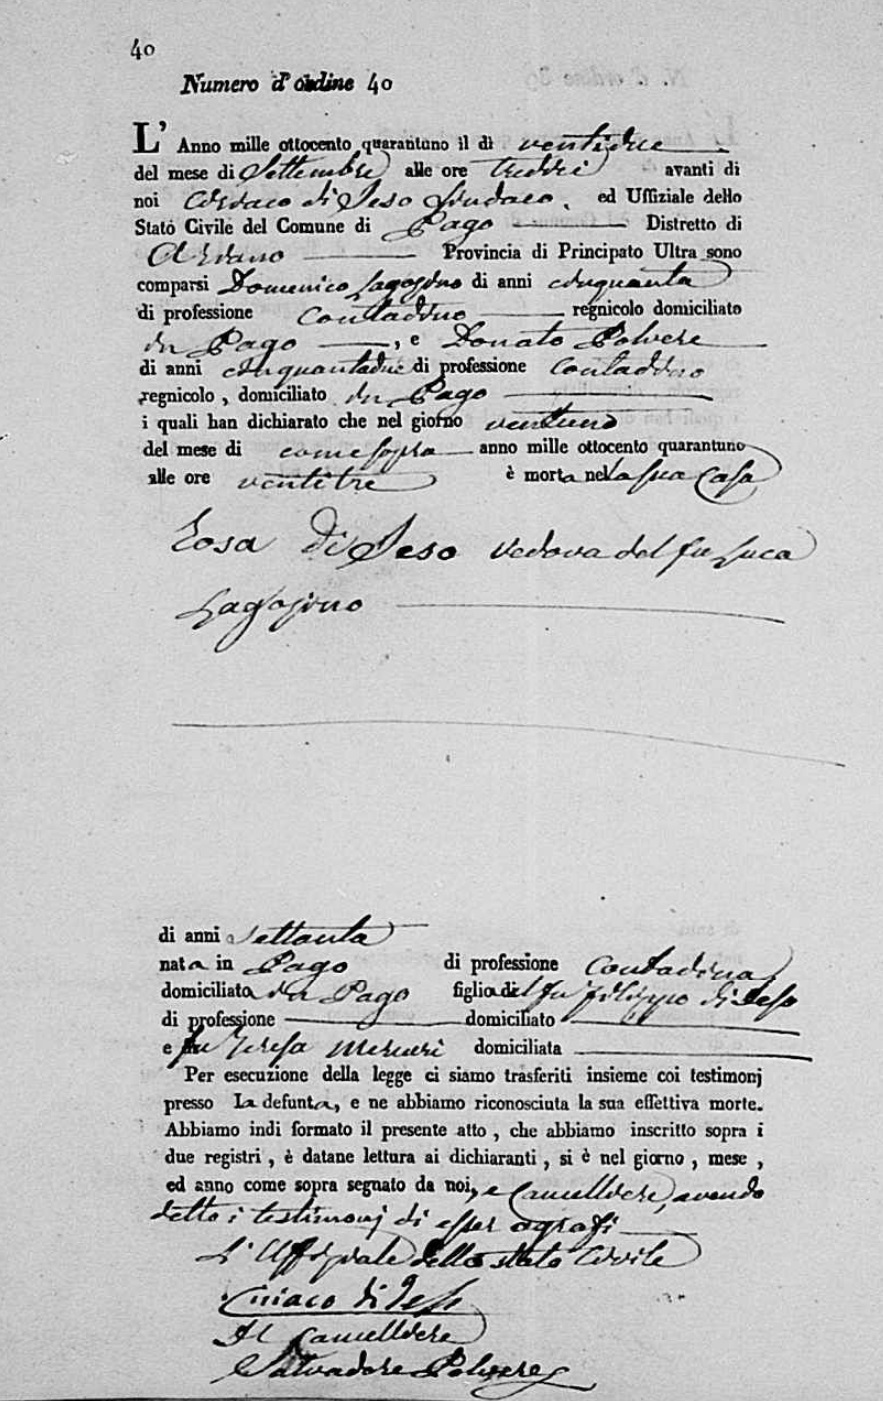 40
Numero d' ordine 40
L' Anno mille ottocento quarantuno il dì ventidue
del mese di Settembre alle ore tredici avanti di
noi Ciriaco di Jeso Sindaco, ed Uffiziale dello
Stato Civile del Comune di Pago Distretto di
Ariano Provincia di Principato Ultra sono
comparsi Domenico di anni cinquanta
di professione Contadino regnicolo domiciliato
in Pago , e Donato Polvere
di anni cinquantadue di professione Contadino
regnicolo , domiciliato in Pago
i quali han dichiarato che nel giorno ventuno
del mese di come sopra anno mille ottocento quarantuno
alle ore ventitre è morta nella sua Casa
Rosa Di Jeso vedova del fu Luca

di anni settanta
nata in Pago di professione Contadina
domiciliata in Pago figlia del fu Filippo di Jeso
di professione domiciliato
e fu Teresa Mercuri domiciliata
Per esecuzione della legge ci siamo trasferiti insieme coi testimonj
presso La defunta, e ne abbiamo riconosciuta la sua effettiva morte.
Abbiamo indi formato il presente atto , che abbiamo inscritto sopra i
due registri , è datane lettura ai dichiaranti , si è nel giorno , mese ,
ed anno come sopra segnato da noi, e Cancelliere, avendo
detto i testimonj di esser agrafi
L' Uffiziale dello stato Civile
Ciriaco di Jeso
Il Cancelliere
Salvadore Polvere